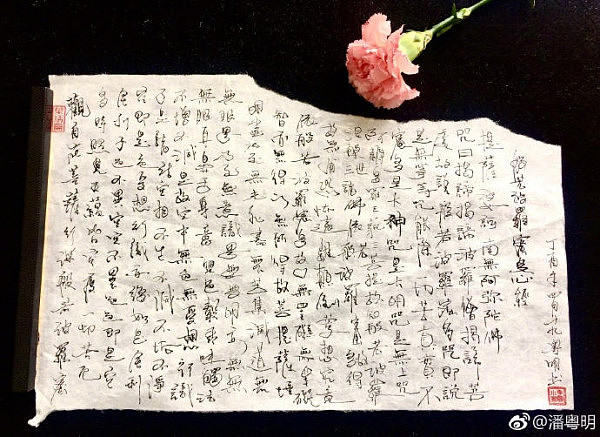 觀自在菩薩行深般若波羅蜜
多時照見五蘊皆空度一切苦厄
舍利子色不異空空不異色色即是空
空即是色受想行識亦復如是舍利
子是諸法空相不生不滅不垢不淨
不增不減是故空中無色無受想行識
無眼耳鼻舌身意無色聲香味觸法
無眼界乃至無意識界無無明亦無無
明盡乃至無老死亦無老死盡無苦集滅道無
智亦無得以無所得故菩提薩埵
依般若波羅蜜多故心無罣礙無罣礙
故無有恐怖遠離顛倒夢想究竟
涅槃三世諸佛依般若波羅蜜多故得
阿耨多羅三藐三菩提故知般若波羅
蜜多是大神咒是大明咒是無上咒
是無等等咒能除一切苦真實不
虛故說般若波羅蜜多咒即說
咒曰揭諦揭諦波羅揭諦
提薩婆訶南無阿彌陀佛
般若波羅蜜多心經
丁酉年四月 粤明
@潘粤明